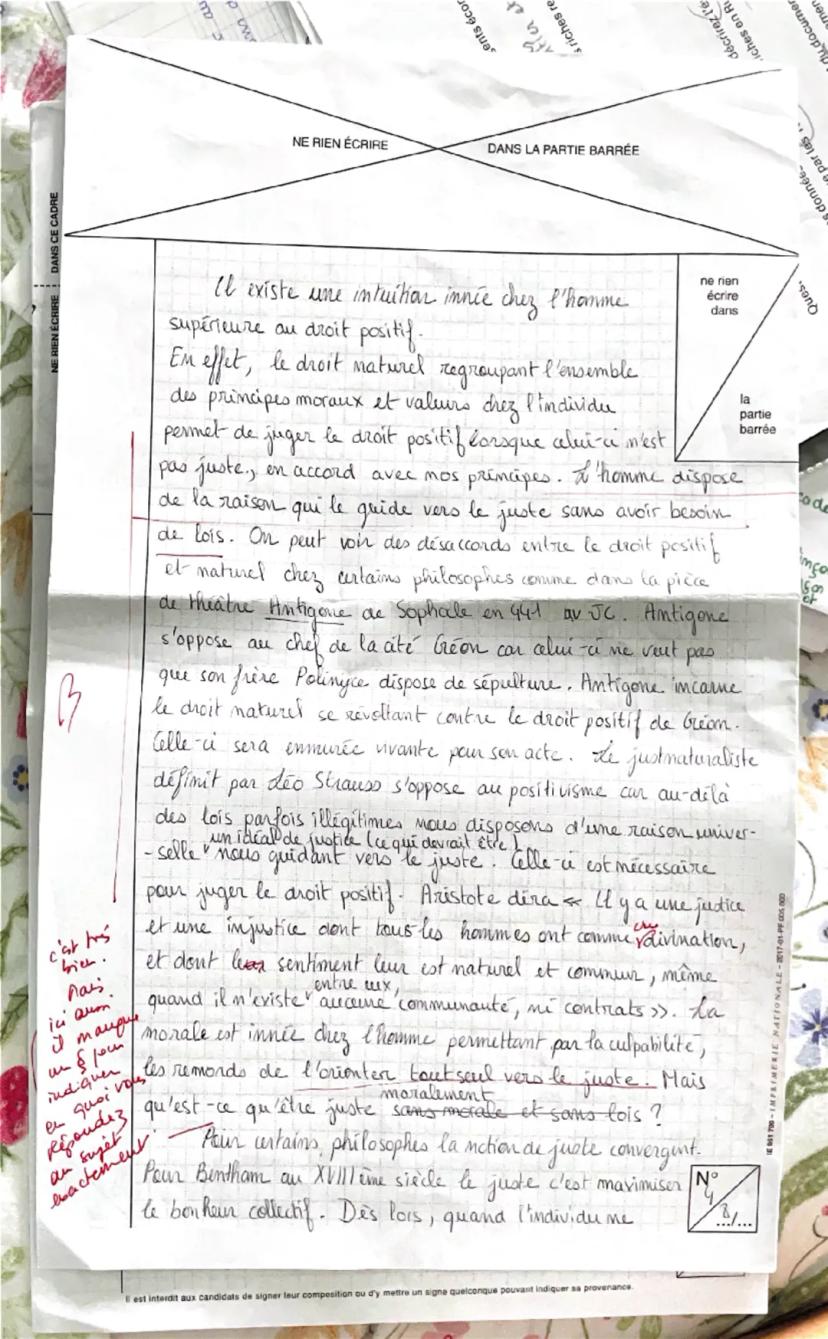 NE RIEN ÉCRIRE DANS LA PARTIE BARRÉE
NE RIEN ÉCRIRE DANS CE CADRE
ne rien
écrire
dans
la
partie
barrée
Il existe une intuition innée chez l'homme
supérieure au droit positif.
En effet, le droit naturel regroupant l'ensemble
des principes moraux et valeurs chez l'individu
permet de juger le droit positif lorsque celui-ci n'est
pas juste, en accord avec nos principes. L'homme dispose
de la raison qui le guide vers le juste sans avoir besoin
de lois. On peut voir des désaccords entre le droit positif
et naturel chez certains philosophes comme dans la pièce
de théâtre Antigone de Sophale en 441 av JC. Antigone
s'oppose au chef de la cité Créon car celui-ci ne veut pas
que son frère Polinyce dispose de sépulture. Antigone incarne
le droit naturel se révoltant contre le droit positif de Créon.
Celle-ci sera emmurée vivante pour son acte. Le justnaturaliste
définit par Léo Strauss s'oppose au positivisme car au-delà
des lois parfois illégitimes nous disposons d'une raison univer-
un idéal de justice (ce qui devrait être)
-selle nous guidant vers le juste. Celle-ci est nécessaire
pour juger le droit positif. Aristote dira « Il y a une justice
et une injustice dont tous les hommes ont comme une divination,
et dont le sentiment leur est naturel et commun, même
entre eux,
quand il n'existe aucune communauté, ni contrats ». La
morale est innée chez l'homme permettant par la culpabilité,
les remords de l'orienter tout seul vers le juste. Mais
moralement
qu'est-ce qu'être juste sans morale et sans lois ?
Pour certains philosophes la notion de juste convergent.
Pour Bentham au XVIIIème siècle le juste c'est maximiser
le bonheur collectif. Dès lors, quand l'individu ne
B
c'est très
bien.
Mais
ici aussi
il manque
un § pour
indiquer
en quoi vous
répondez
au sujet
exactement
N°
4
8/...
IMPRIMERIE NATIONALE
Il est interdit aux candidats de signer leur composition ou d'y mettre un signe quelconque pouvant indiquer sa provenance.